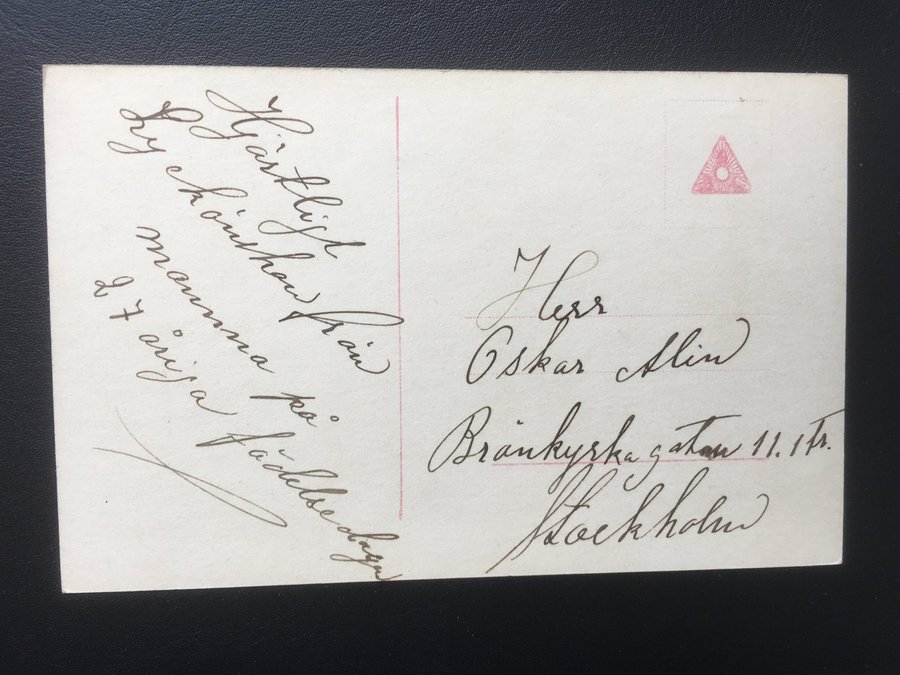 Hjärtligt
Lyckönskan från
mamma på
27 åriga födelsedagen
Herr
Oskar Alin
Bränkyrkagatan 11. 1 tr.
Stockholm